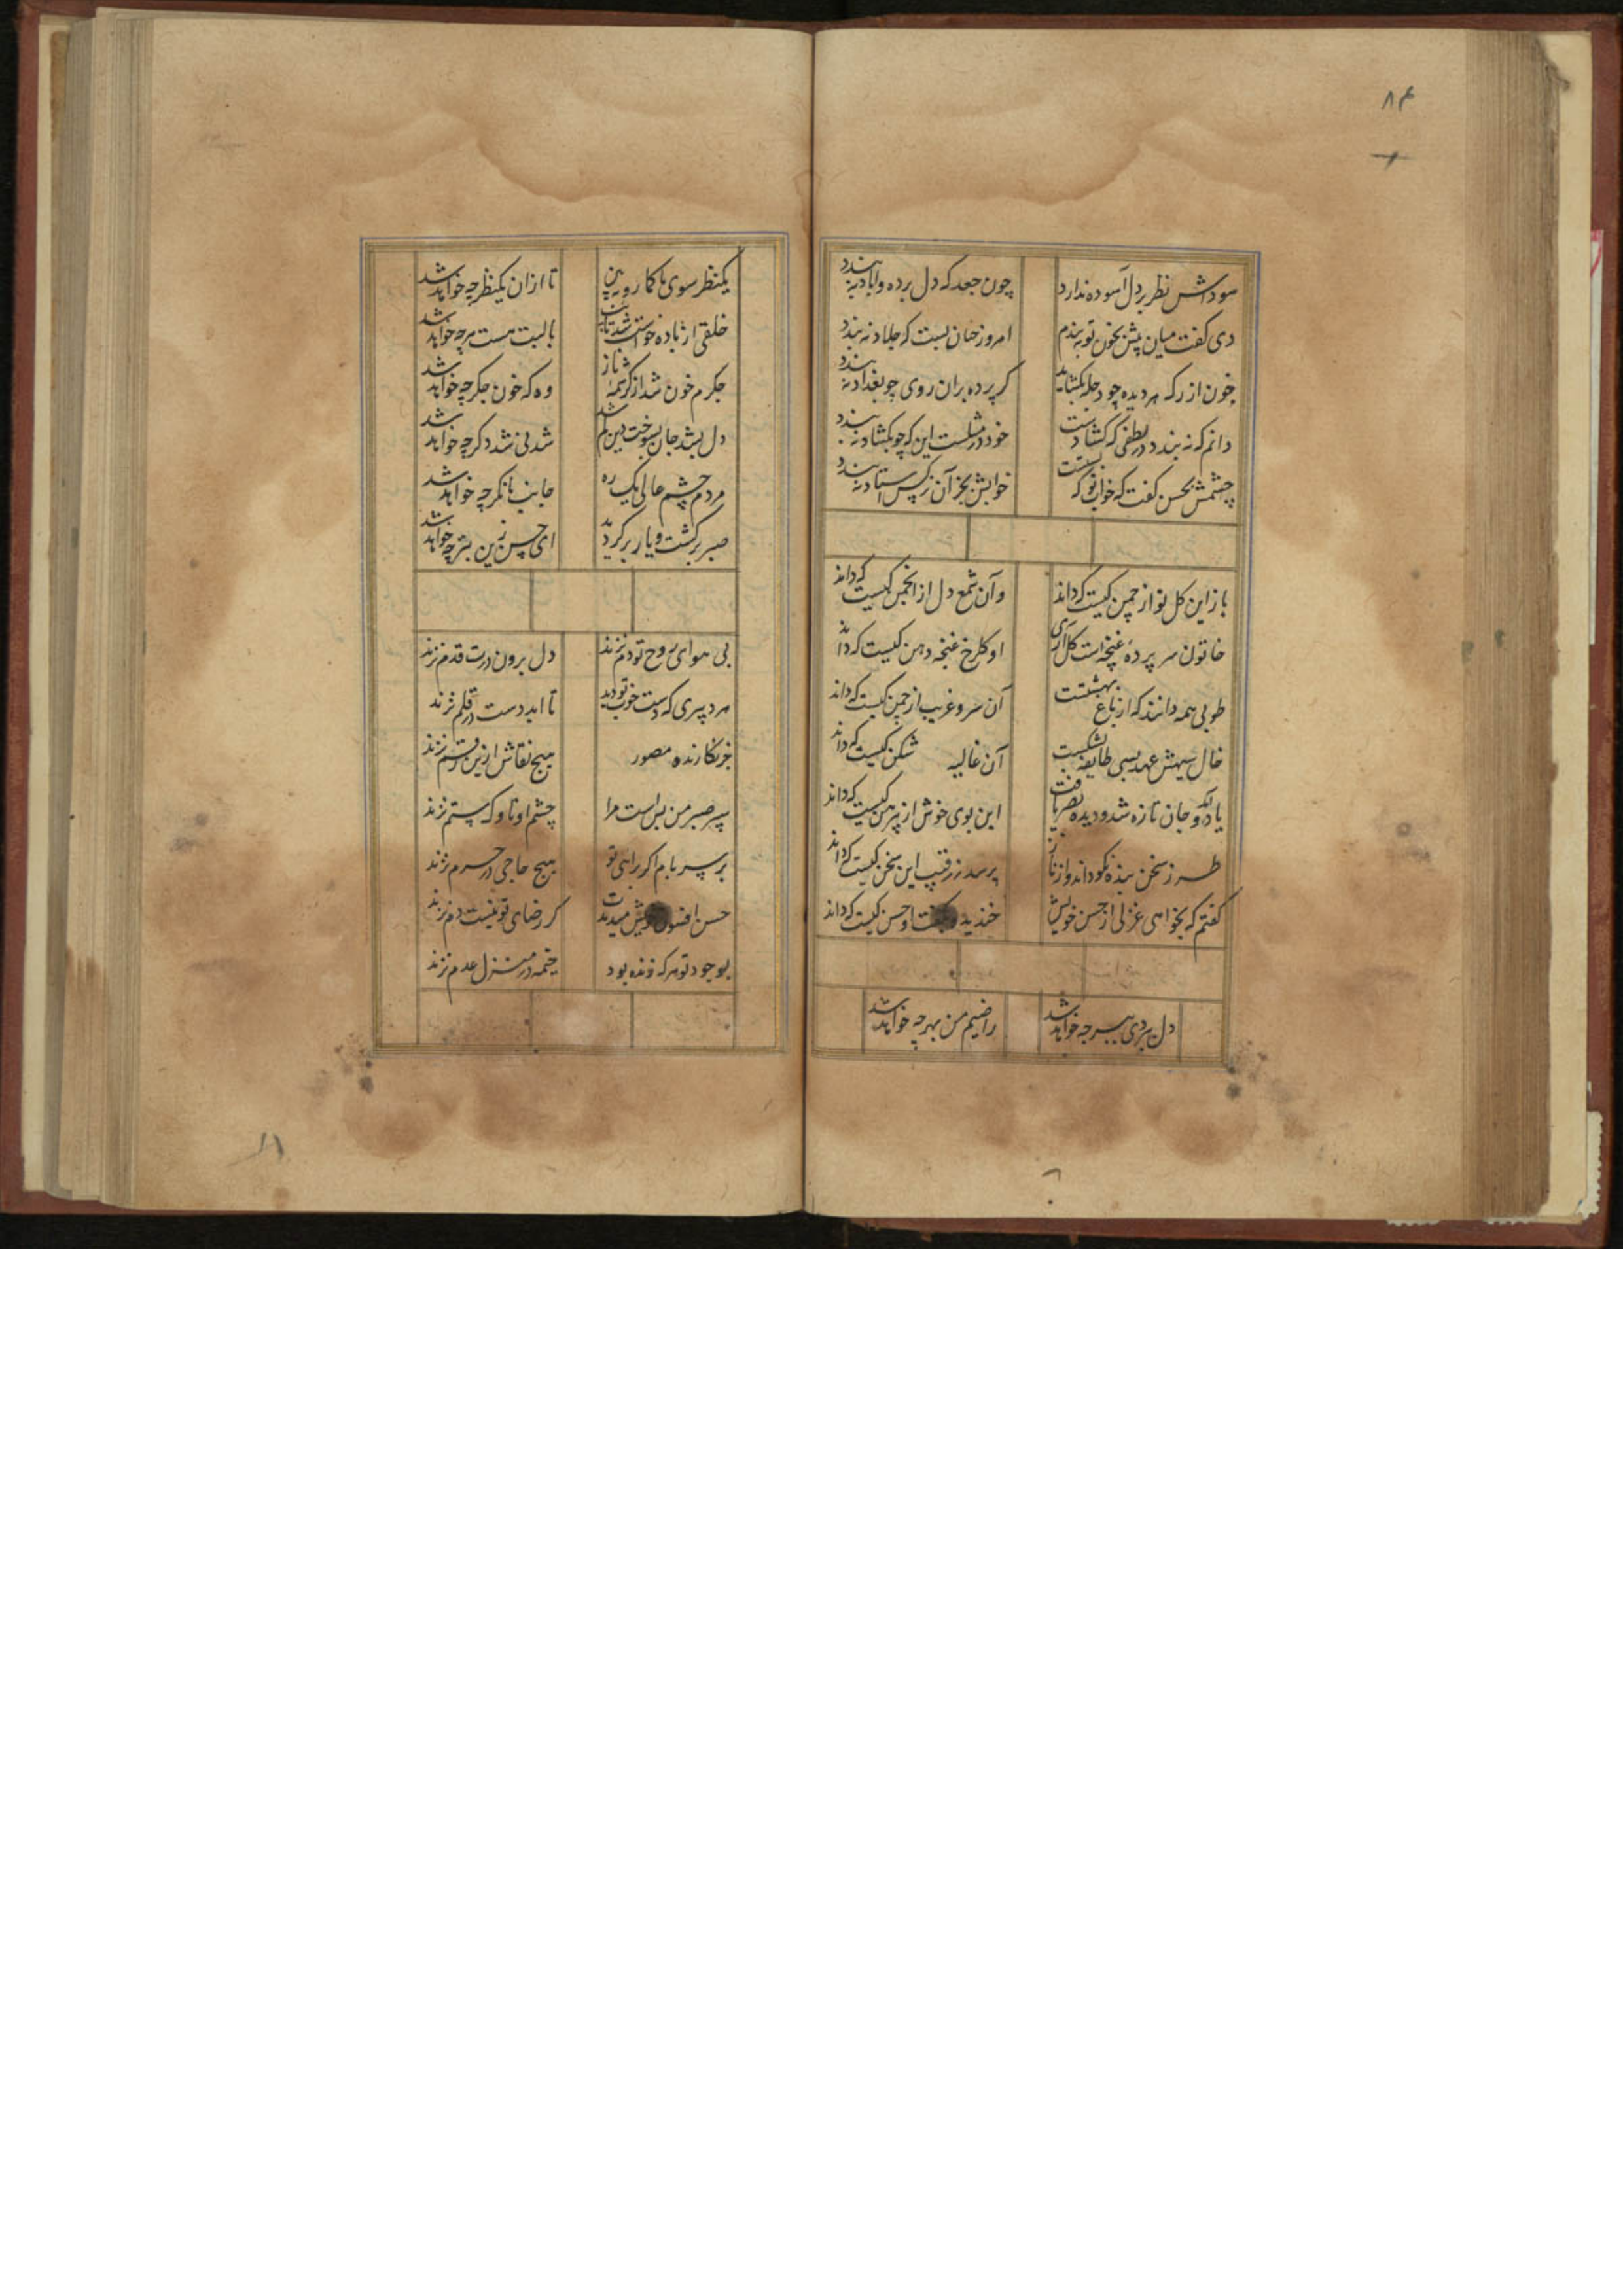 ۸۴
سوداش نظر بر دل آسوده ندارد چون جعد که دل برده و آباد نه بندد
دی گفت میان پیش بخون تو به بندم امروز چنان بست که جلاد نه بندد
خون از رگ هر دیده چو دجله بگشاید گر پرده بران روی چو بغداد نه بندد
دانم که نه بندد در لطفی که کشادست خود در مثلست این که چو بکشاد نه بندد
چشمش بحسن گفت که خواب تو که بستست خوابش بجز آن نرگس استاد نه بندد
باز این گل نو از چمن کیست که داند وآن شمع دل از انجمن کیست که داند
خاتون سر پرده غنچه است گل آری او گلرخ غنچه دهن کیست که داند
طوبی همه دانند که از باغ بهشتست آن سرو غریب از چمن کیست که داند
خال سیهش عهد بسی طایفه بشکست آن غالیه شکن کیست که داند
یاد آمد و جان تازه شد و دیده بصر یافت این بوی خوش از پیرهن کیست که داند
طرز سخن بنده نکو داند و از ناز پرسد ز رقیب این سخن کیست که داند
گفتم که بخواهی غزلی از حسن خویش خندید و گفت او حسن کیست که داند
دل ببردی ببر چه خواهد شد راضیم من بهرچه خواهد شد
یکنظر سوی ما کما رو ببین تا ازان یکنظر چه خواهد شد
خلقی از باده خواست شد با لبت هست هرچه خواهد شد
جگرم خون شد از کرشمه ناز وه که خون جگر چه خواهد شد
دل بشد جان بسوخت دین کم شد شدنی شد دگر چه خواهد شد
مردم چشم عالی یک ره جانب ما نگر چه خواهد شد
صبر برگشت و یار برگردید ای حسن زین بتر چه خواهد شد
بی هوای تو روح دم نزند دل برون درت قدم نزند
هر دبیری که دست خط تو دید تا ابد دست در قلم نزند
جز نگارنده مصور هیچ نقاش ازین رقم نزند
سپر صبر من بس است مرا چشم او ناوک ستم نزند
بر سر بام اگر برایی تو هیچ حاجی در حرم نزند
حسن افسون خویش میدمدت گر رضای تو نیست دم نزند
بوجود تو هر که زنده بود خیمه در منزل عدم نزند
۸۱